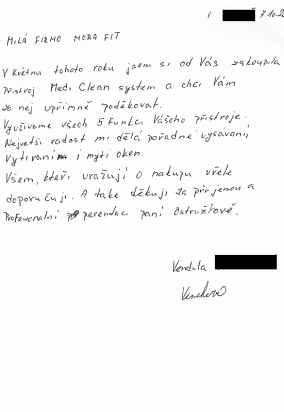 V 7.10.20
MILÁ FIRMO MORA FIT
V Květnu tohoto roku jsem si od Vás zakoupila
přístroj Medi Clean system a chci Vám
za nej upřímně poděkovat.
Využívame všech 5 Funkcí Vášeho přístroje.
Nejvetší radost mi dělá pořadné vysávaní,
Vytíraní i mytí oken.
Všem, kteří uvažují o nakupu vřele
doporučuji. A take děkuji za příjemou a
Profesonalní prezendaci paní Ostružkové.
Vendula